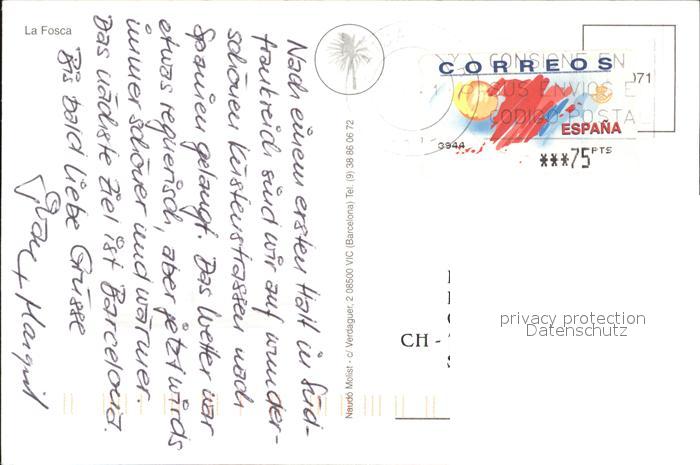 La Fosca
Nach einem ersten Halt in Süd-
frankreich sind wir auf wunder-
schönen Küstenstrassen nach
Spanien gelangt. Das Wetter war
etwas regnerisch, aber jetzt wirds
immer schöner und wärmer.
Das nächste Ziel ist Barcelona.
Bis bald liebe Grüsse
+ Margrit
Naudó Molist - c/ Verdaguer, 2 08500 VIC (Barcelona) Tel. (9) 38 86 06 72
CONSIGNE EN
SUS ENVIOS E
CODIGO POSTA
CORREOS
071
ESPAÑA
3944
***75 PTS
privacy protection
Datenschutz
CH -